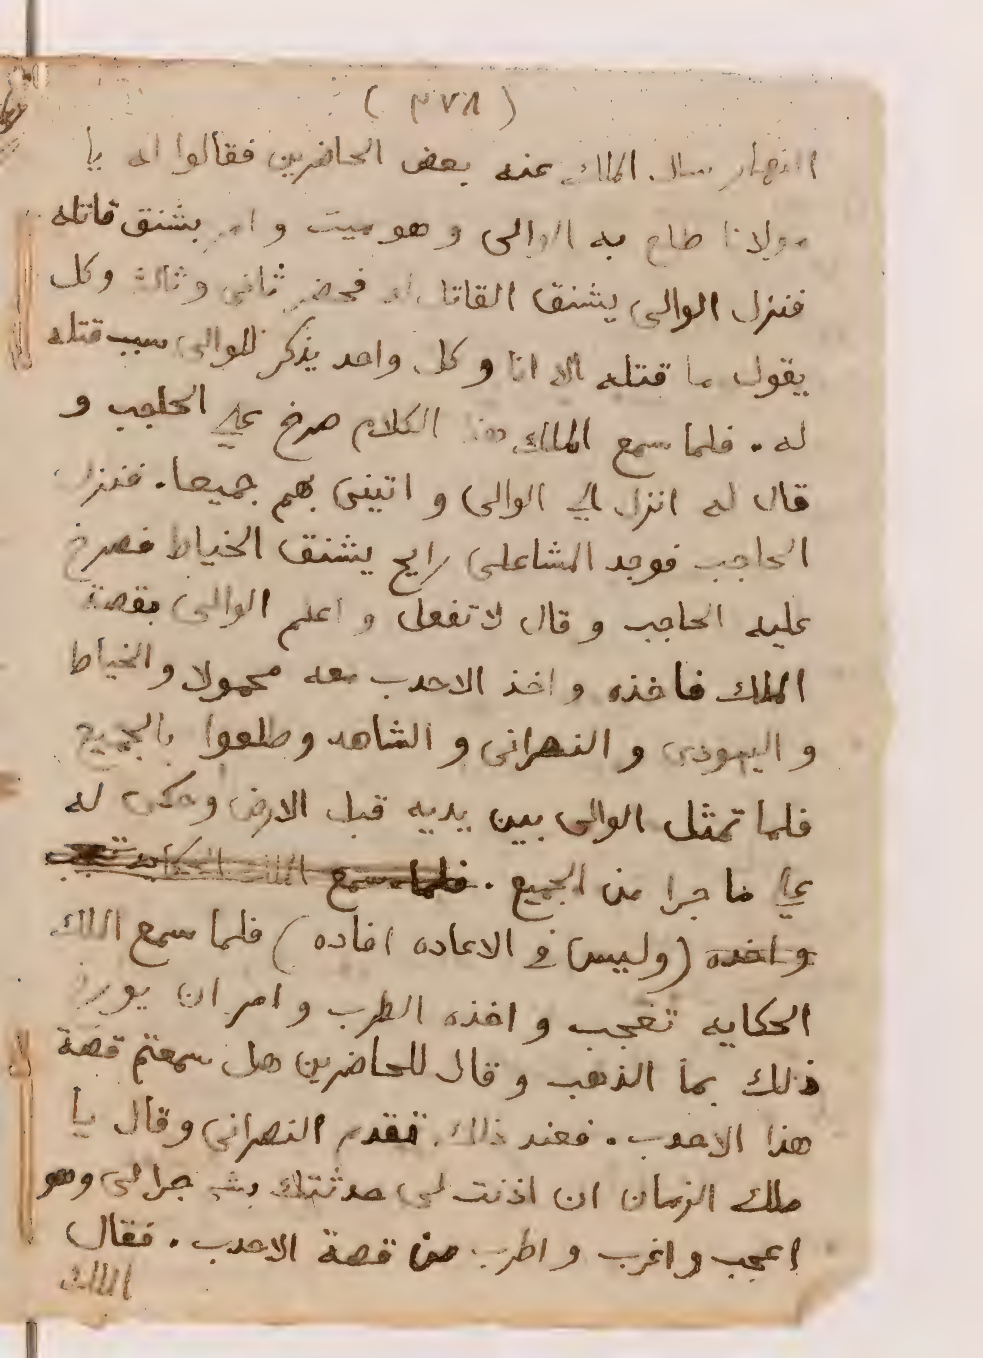 ( ٣٧٨ )
النهار سال الملك عنه بعض الحاضرين فقالوا له يا
مولانا طلع به الوالى و هو ميت و امر بشنق قاتله
فنزل الوالى يشنق القاتل له فحضر ثانى و ثالث وكل
يقول ما قتله الا انا و كل واحد يذكر للوالى سبب قتله
له . فلما سمع الملك هذا الكلام صرخ على الحاجب و
قال له انزل الى الوالى و اتينى بهم جميعا . فنزل
الحاجب فوجد المشاعلى رايح يشنق الخياط فصرخ
عليه الحاجب و قال لا تفعل و اعلم الوالى بقصة
الملك فاخذه و اخذ الاحدب معه محمولا و الخياط
و اليهودى و النصرانى و الشاهد و طلعوا بالجميع
فلما تمثل الوالى بين يديه قبل الارض وحكى له
على ما جرا من الجميع . فلما سمع الملك الحكايه تعجب
و اخده (وليس فى الاعاده افاده) فلما سمع الملك
الحكايه تعجب و اخذه الطرب و امر ان يورخ
ذلك بما الذهب و قال للحاضرين هل سمعتم قصة
هذا الاحدب . فعند ذلك تقدم النصرانى وقال يا
ملك الزمان ان اذنت لى حدثتك بشى جرا لى وهو
اعجب و اغرب و اطرب من قصة الاحدب . فقال
الملك